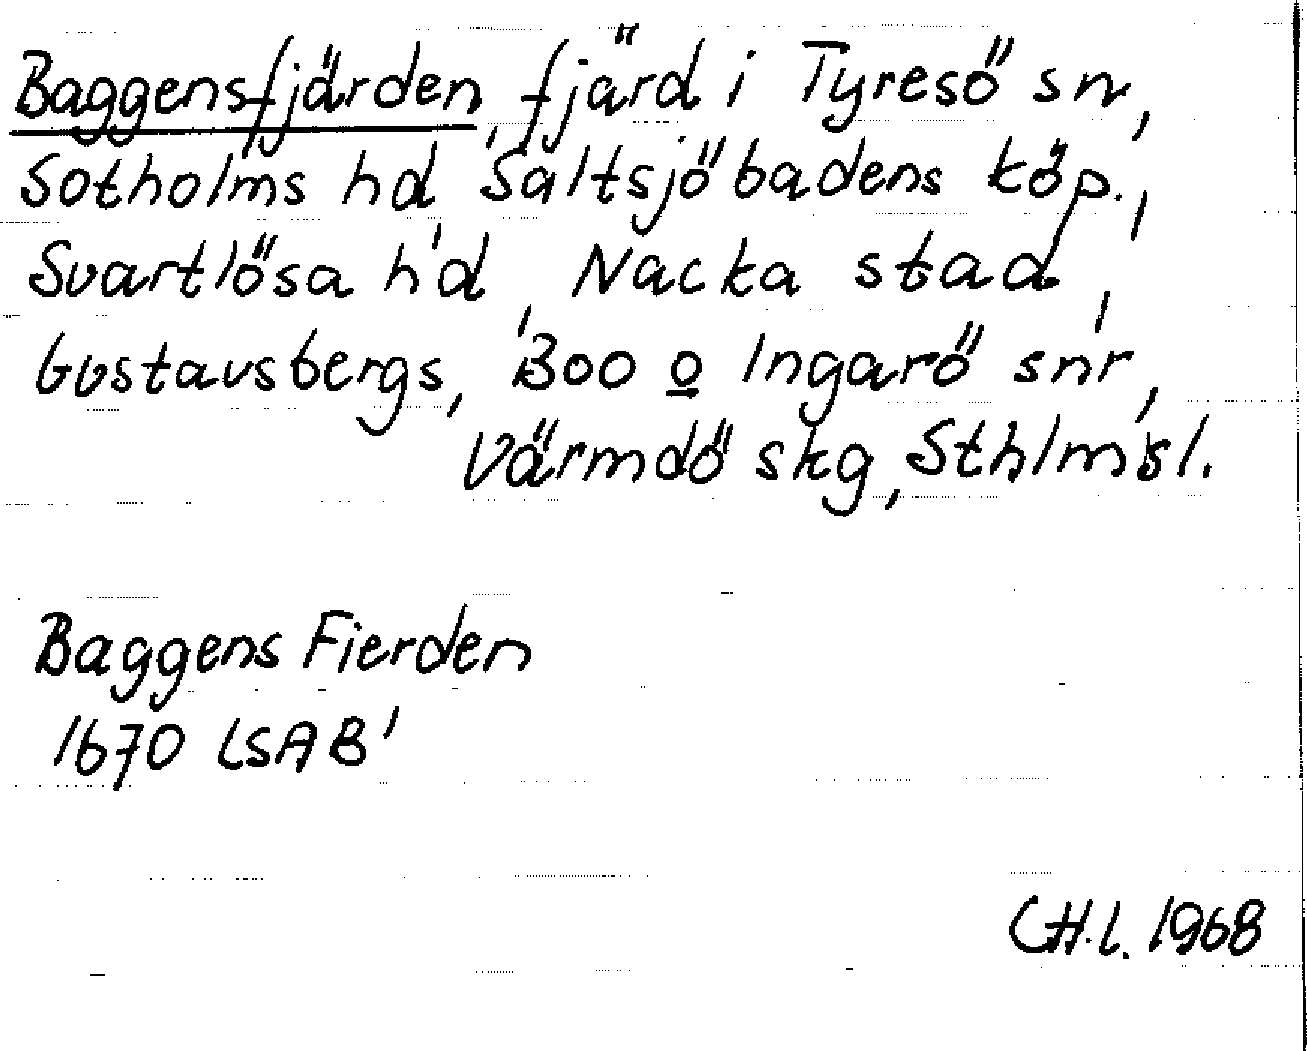 Baggensfjärden, fjärd i Tyresö sn,
Sotholms hd, Saltsjöbadens köp.,
Svartlösa hd, Nacka stad,
Gustavsbergs, Boo o Ingarö snr,
Värmdö skg, Sthlms l.
Baggens Fierden
1670 LSAB'
CH.L. 1968